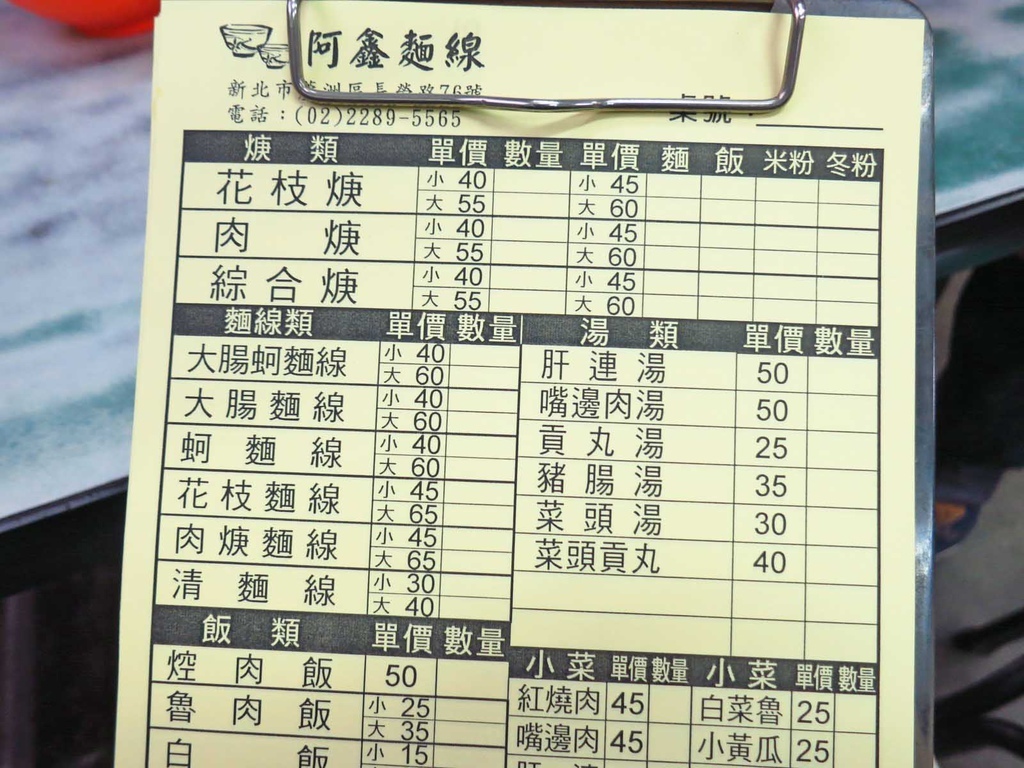 阿鑫麵線
新北市蘆洲區長榮路76號
電話：(02)2289-5565
桌號：
焿類 單價 數量 單價 麵 飯 米粉 冬粉
花枝焿 小 40 小 45
大 55 大 60
肉焿 小 40 小 45
大 55 大 60
綜合焿 小 40 小 45
大 55 大 60
麵線類 單價 數量
大腸蚵麵線 小 40
大 60
大腸麵線 小 40
大 60
蚵麵線 小 40
大 60
花枝麵線 小 45
大 65
肉焿麵線 小 45
大 65
清麵線 小 30
大 40
湯類 單價 數量
肝連湯 50
嘴邊肉湯 50
貢丸湯 25
豬腸湯 35
菜頭湯 30
菜頭貢丸 40
飯類 單價 數量
焢肉飯 50
魯肉飯 小 25
大 35
白飯 小 15
小菜 單價 數量 小菜 單價 數量
紅燒肉 45 白菜魯 25
嘴邊肉 45 小黃瓜 25
肝連